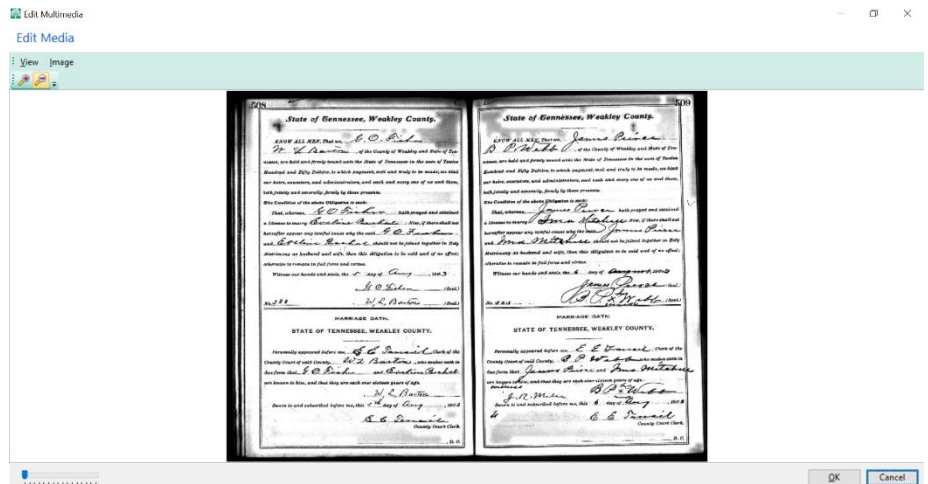 Edit Multimedia
Edit Media
View Image
508
State of Tennessee, Weakley County.
KNOW ALL MEN, That we, G. O. Fisher
W L Barton, of the County of Weakley and State of Ten-
nessee, are held and firmly bound unto the State of Tennessee in the sum of Twelve
Hundred and Fifty Dollars, to which payment, well and truly to be made, we bind
our heirs, executors, and administrators, and each and every one of us and them,
both jointly and severally, firmly by these presents.
The Condition of the above Obligation is such:
That, whereas, G O Fisher hath prayed and obtained
a License to marry Eveline Now, if there shall not
hereafter appear any lawful cause why the said G O
and Eveline should not be joined together in Holy
Matrimony as husband and wife, then this obligation to be void and of no effect;
otherwise to remain in full force and virtue.
Witness our hands and seals, the 5 day of Aug 1903
G O Fisher (Seal)
No. W. L. Barton (Seal)
MARRIAGE OATH.
STATE OF TENNESSEE, WEAKLEY COUNTY.
Personally appeared before me, E E Tansil Clerk of the
County Court of said County, W L Barton, who makes oath in
due form that G O Fisher and Eveline
are known to him, and that they are each over sixteen years of age.
W. L. Barton
Sworn to and subscribed before me, this 5th day of Aug 1903
E E Tansil
County Court Clerk.
D. C.
509
State of Tennessee, Weakley County.
KNOW ALL MEN, That we, James Peirce
B P Webb, of the County of Weakley and State of Ten-
nessee, are held and firmly bound unto the State of Tennessee in the sum of Twelve
Hundred and Fifty Dollars, to which payment, well and truly to be made, we bind
our heirs, executors, and administrators, and each and every one of us and them,
both jointly and severally, firmly by these presents.
The Condition of the above Obligation is such:
That, whereas, James Pierce hath prayed and obtained
a License to marry Mitchell Now, if there shall not
hereafter appear any lawful cause why the said James Pierce
and Mitchell should not be joined together in Holy
Matrimony as husband and wife, then this obligation to be void and of no effect;
otherwise to remain in full force and virtue.
Witness our hands and seals, the 6 day of August, 1903
James Peirce (Seal)
his
B. P. x Webb (Seal)
mark
No.
MARRIAGE OATH.
STATE OF TENNESSEE, WEAKLEY COUNTY.
Personally appeared before me, E E Tansil, Clerk of the
County Court of said County, B P Webb who makes oath in
due form that James Peirce and Mitchell
are known to him, and that they are each over sixteen years of age.
witness B P x Webb
J. R. Miles
Sworn to and subscribed before me, this 6 day of Aug 1903
E E Tansil
County Court Clerk.
D. C.
OK Cancel